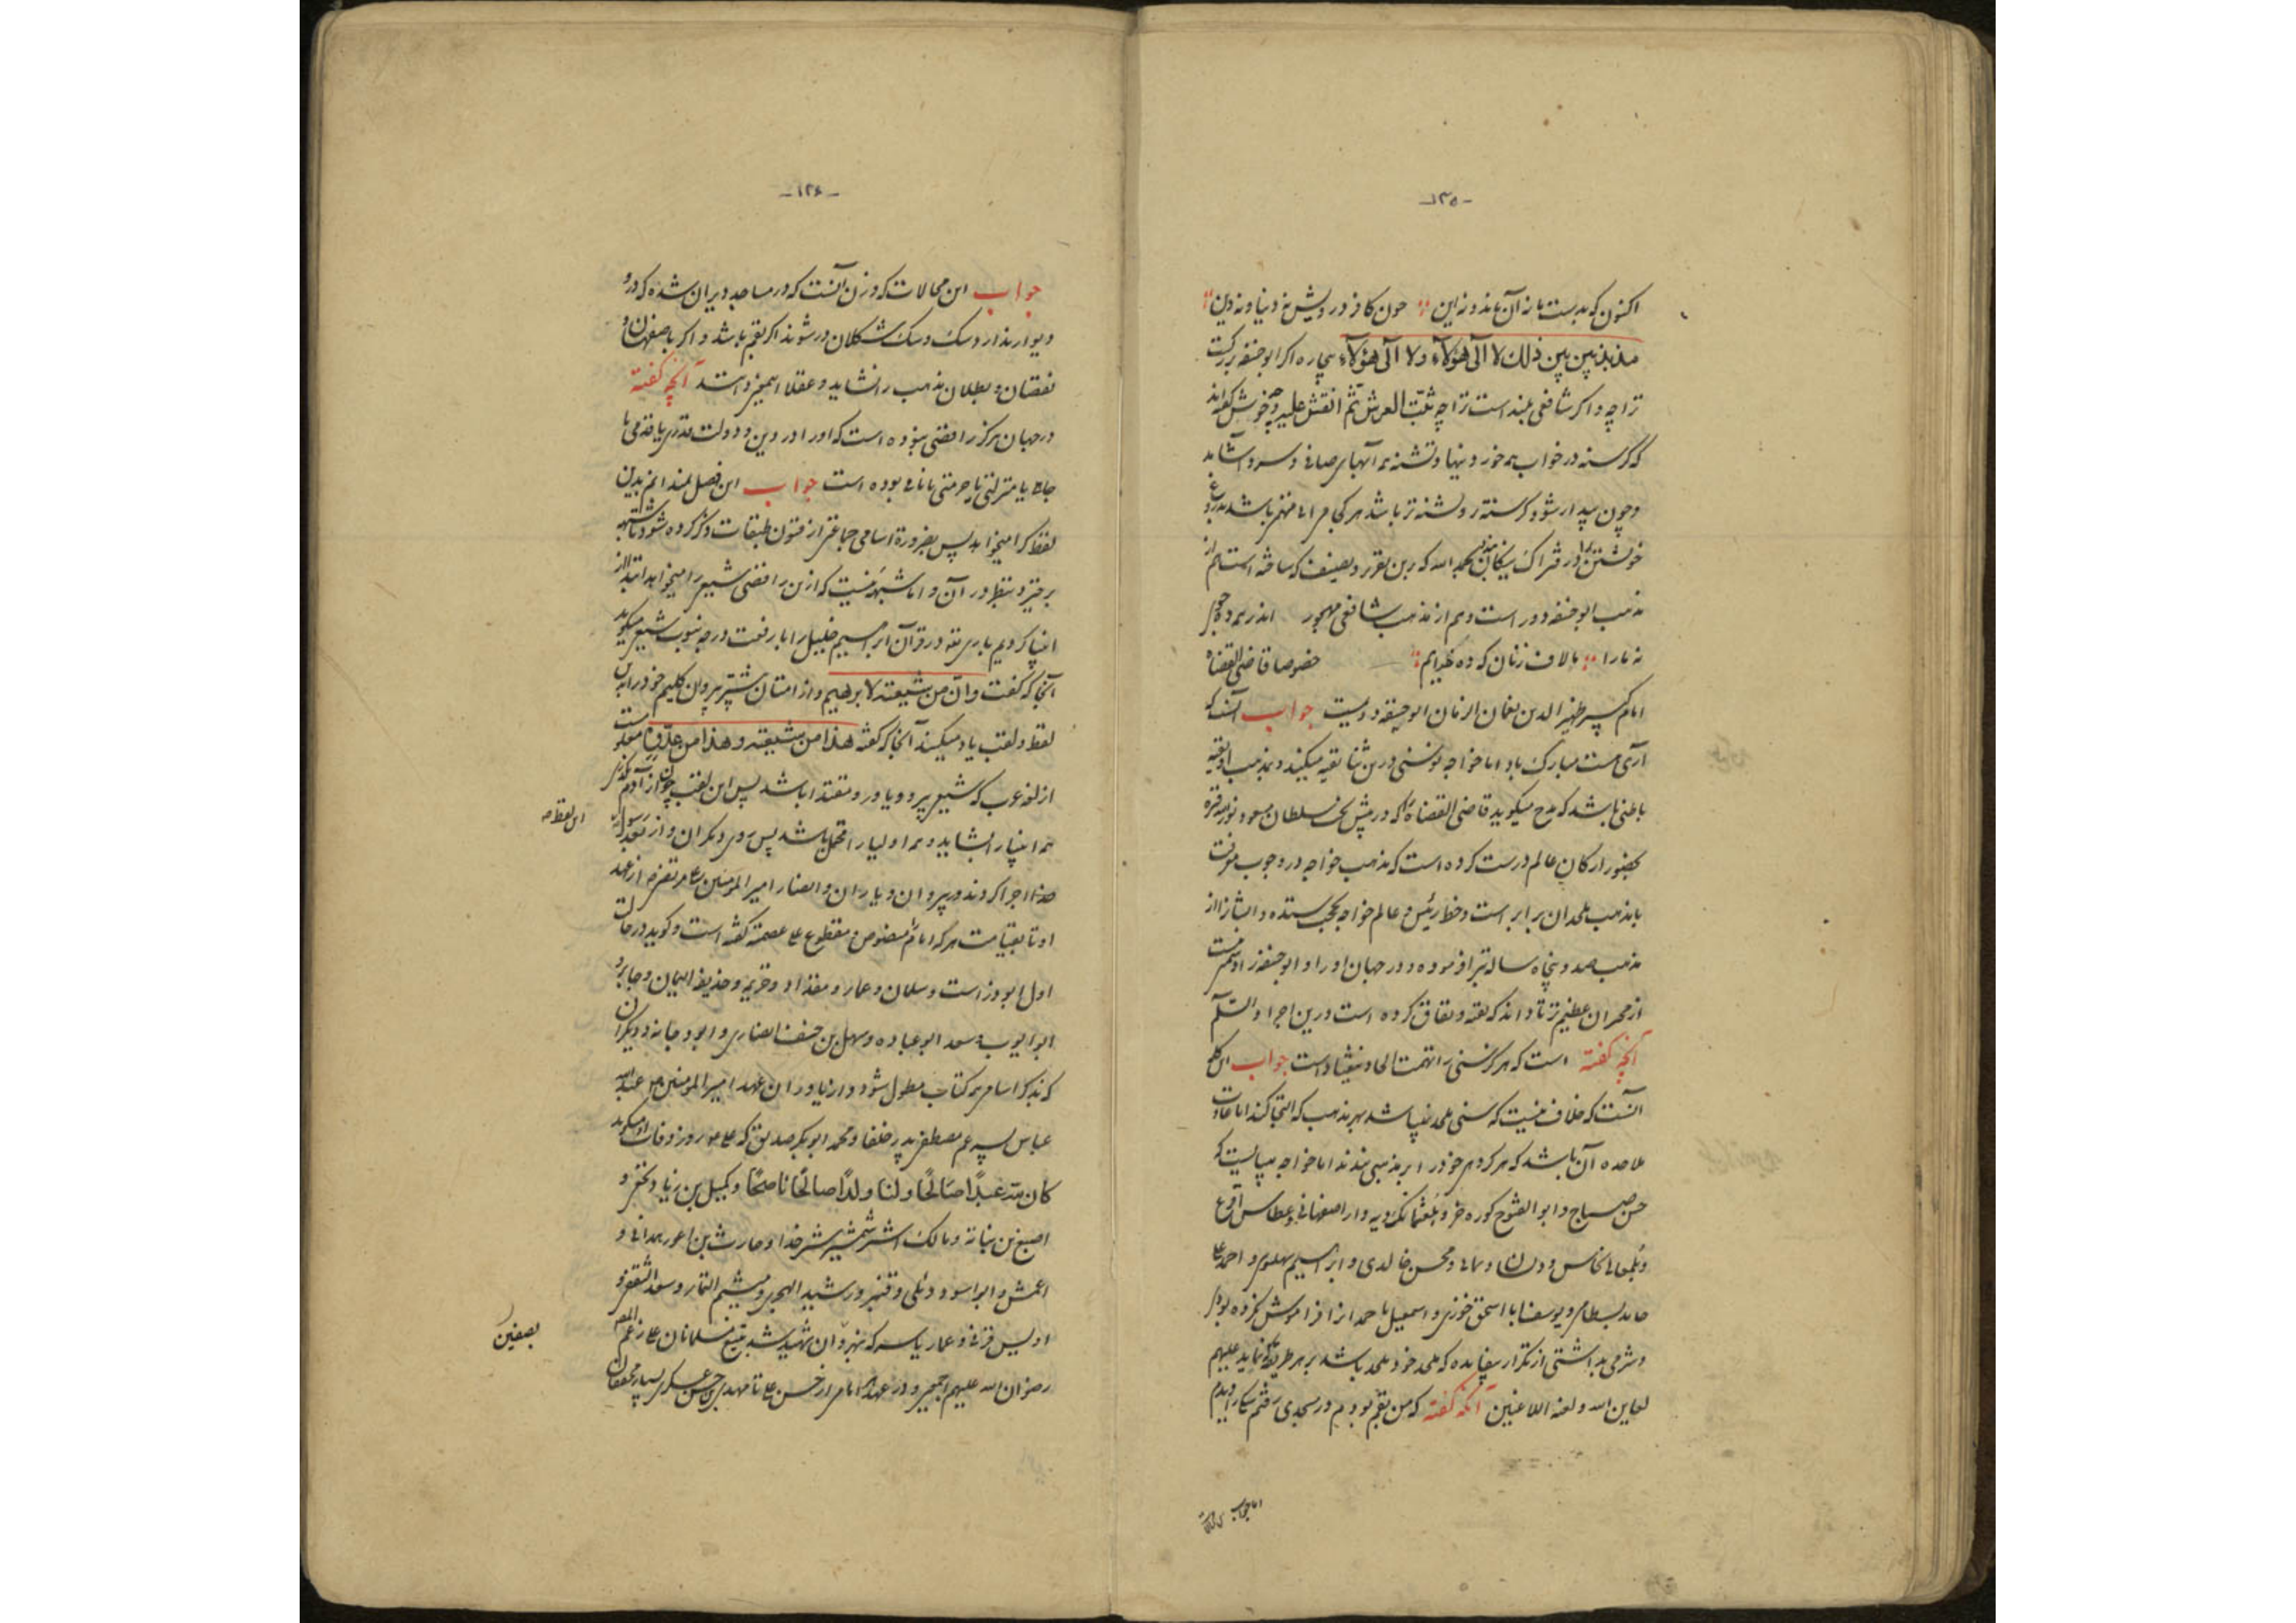 -۱۲۵-
اکنون که بدست ما نه آن ماند و نه این چون کافر درویش نه دنیا و نه دین
مذبذبین بین ذلک لا الی هؤلاء ولا الی هؤلاء بیچاره اگر ابو حنیفه بزرگست
ترا چه و اگر شافعی بلند است ترا چه ثبت العرش ثم انقش علیه و چه خوش گفته‌اند
که گرسنه در خواب همه خورد بینها و تشنه همه آبهای صافی و سرد آشامد
و چون بیدار شود گرسنه‌تر و تشنه‌تر باشد هر کجا
خویشتن را در فتراک بیگانه بندی بحمد الله که بدین تقریر و تصنیف که ساخته است هم از
مذهب ابو حنیفه دور است و هم از مذهب شافعی مهجور اندر همه ده جوی
نه ما را با لاف زنان که ده خدایم خصوصا قاضی القضاة
امام کبیر ظهیر الدین نعمان الزمان ابو حنیفه دومست جواب آنست که
آری هست مبارک باد اما خواجه نوسنی درین ثنا تقیه میکند و مذهب او تقیه
باطنی باشد که مدح میگوید قاضی القضاة را که در پیش تخت سلطان مسعود نور الله قبره
بحضور ارکان عالم درست کرده است که مذهب خواجه در وجوب معرفت
با مذهب ملحدان برابر است و خط رئیس و عالم خواجه بحجت بستده و ایشان را از
مذهب صد و پنجاه ساله تبرا فرموده و در جهان او را و ابو حنیفه را دشمنیست
از محبران عظیم‌تر تا داند که تقیه و نفاق کرده است درین اجرا و السلم
آنچه گفته است که هرگز سنی را تهمت الحاد ننهاده است جواب این کلمه
آنست که خلاف نیست که سنی ملحد نباشد بهر مذهب که التجا کند اما عادت
ملاحده آن باشد که هر گروهی خود را بر مذهبی بندند اما خواجه میبایست که
حسن صباح و ابو الفتوح
و محسن خالدی و ابراهیم سهلوی و احمد
حامد بسطامی و یوسف با اسحق خوزی و اسمعیل با حمدان را فراموش نکرده بودی
و شرمی بداشتی از تکرار بیفایده که ملحد خود ملحد باشد بهر طریق که نماید علیهم
لعاین الله و لعنة اللاعنین آنکه گفته که من بقم بودم در مسجدی رفتم
اما جواب
-۱۲۶-
جواب این محالات که در زن آنست که در مساجد ویران شده که در و
دیوار ندارد سگ و سگ شکلان در شوند اگر بقم باشد و اگر باصفهان و
نقصان و بطلان مذهب را نشاید و عقلا این همه دانند آنچه گفته
در جهان هرگز رافضی نبوده است که او را در دین و دولت قدری یا قدمی یا
جاه یا منزلتی یا حرمتی یا نامی بوده است جواب این فصل بلند انیم بدین
لفظ کرا میخواهد پس بضرورة اسامی جماعتی از فنون طبقات ذکر کرده شود تا شبهه
برخیزد بنظر در آن و اما شبهه نیست که ازین رافضی شیعی را میخواهد ابتدا از
انبیا کردیم باری تعالی در قرآن ابراهیم خلیل را با رفعت درجه نبوت شیعی میگوید
آنجا که گفت و ان من شیعته لابرهیم و از امتان بیشتر پیروان کلیم خود را بدین
لفظ و لقب یاد میکند آنجا که گفته هذا من شیعته و هذا من عدوه معلومست
از لغة عرب که شیعی پیرو و یاور و مقتدا باشد پس این لقب چون از آدم
همه انبیا را بشاید و همه اولیا را محمل باشد پس روی دیگران و از بعد رسول
این لفظ صح
خدا اجرا کردند در پیروان و یاران و انصار امیر المومنین علی مرتضی از عهد
او تا بقیامت هر که امام منصوص و مقطوع علی عصمته گفته است و گوید در حالت
اول ابوذر است و سلمان و عمار و مقداد و خزیمه و حذیفة الیمان و جابر و
ابو ایوب و سعد ابو عباده و سهل بن حنیف انصاری و ابو دجانه و دیگران
که بذکر اسامی همه کتاب مطول شود و از یاوران عهد امیر المومنین عبد الله
عباس پسر عم مصطفی پدر خلفا و محمد ابو بکر صدیق که علی روز وفات او میگوید
کان لله عبدا صالحا و لنا ولدا صالحا ناصحا و کمیل بن زیاد نخعی و
اصبغ بن نباته و مالک اشتر شمشیر خدا و حارث بن اعور همدانی و
اعمش و ابو اسود دئلی و قنبر و رشید الهجری و میثم التمار و سعد الثقفی و
اویس قرنی و عمار یاسر که بنهروان شهید شد بتیغ مسلمانان علی زعم
بصفین
رضوان الله علیهم اجمعین و در عهد هر امامی از حسن علی تا مهدی بن حسن عسکری